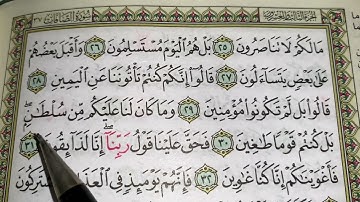 سورة الصافات ٣٧
الجزء الثالث والعشرون
مَا لَكُمْ لَا تَنَاصَرُونَ ٢٥ بَلْ هُمُ الْيَوْمَ مُسْتَسْلِمُونَ ٢٦ وَأَقْبَلَ بَعْضُهُمْ
عَلَىٰ بَعْضٍ يَتَسَاءَلُونَ ٢٧ قَالُوا إِنَّكُمْ كُنْتُمْ تَأْتُونَنَا عَنِ الْيَمِينِ ٢٨
قَالُوا بَلْ لَمْ تَكُونُوا مُؤْمِنِينَ ٢٩ وَمَا كَانَ لَنَا عَلَيْكُمْ مِنْ سُلْطَانٍ
بَلْ كُنْتُمْ قَوْمًا طَاغِينَ ٣٠ فَحَقَّ عَلَيْنَا قَوْلُ رَبِّنَا إِنَّا لَذَائِقُونَ ٣١
فَأَغْوَيْنَاكُمْ إِنَّا كُنَّا غَاوِينَ ٣٢ فَإِنَّهُمْ يَوْمَئِذٍ فِي الْعَذَابِ مُشْتَرِكُونَ